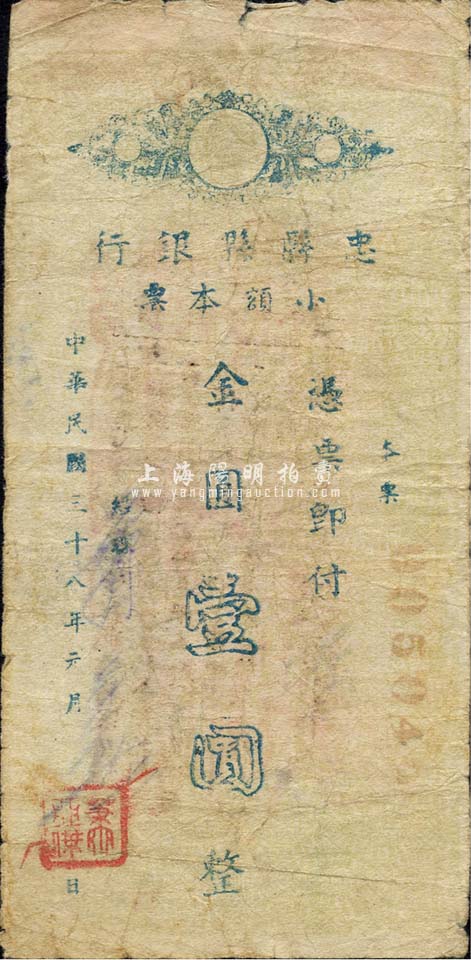 忠縣縣銀行
小額本票
本票
憑票即付
金圓壹圓整
經理
中華民國三十八年元月 日
00504
上海陽明拍賣
www.yangmingauction.com